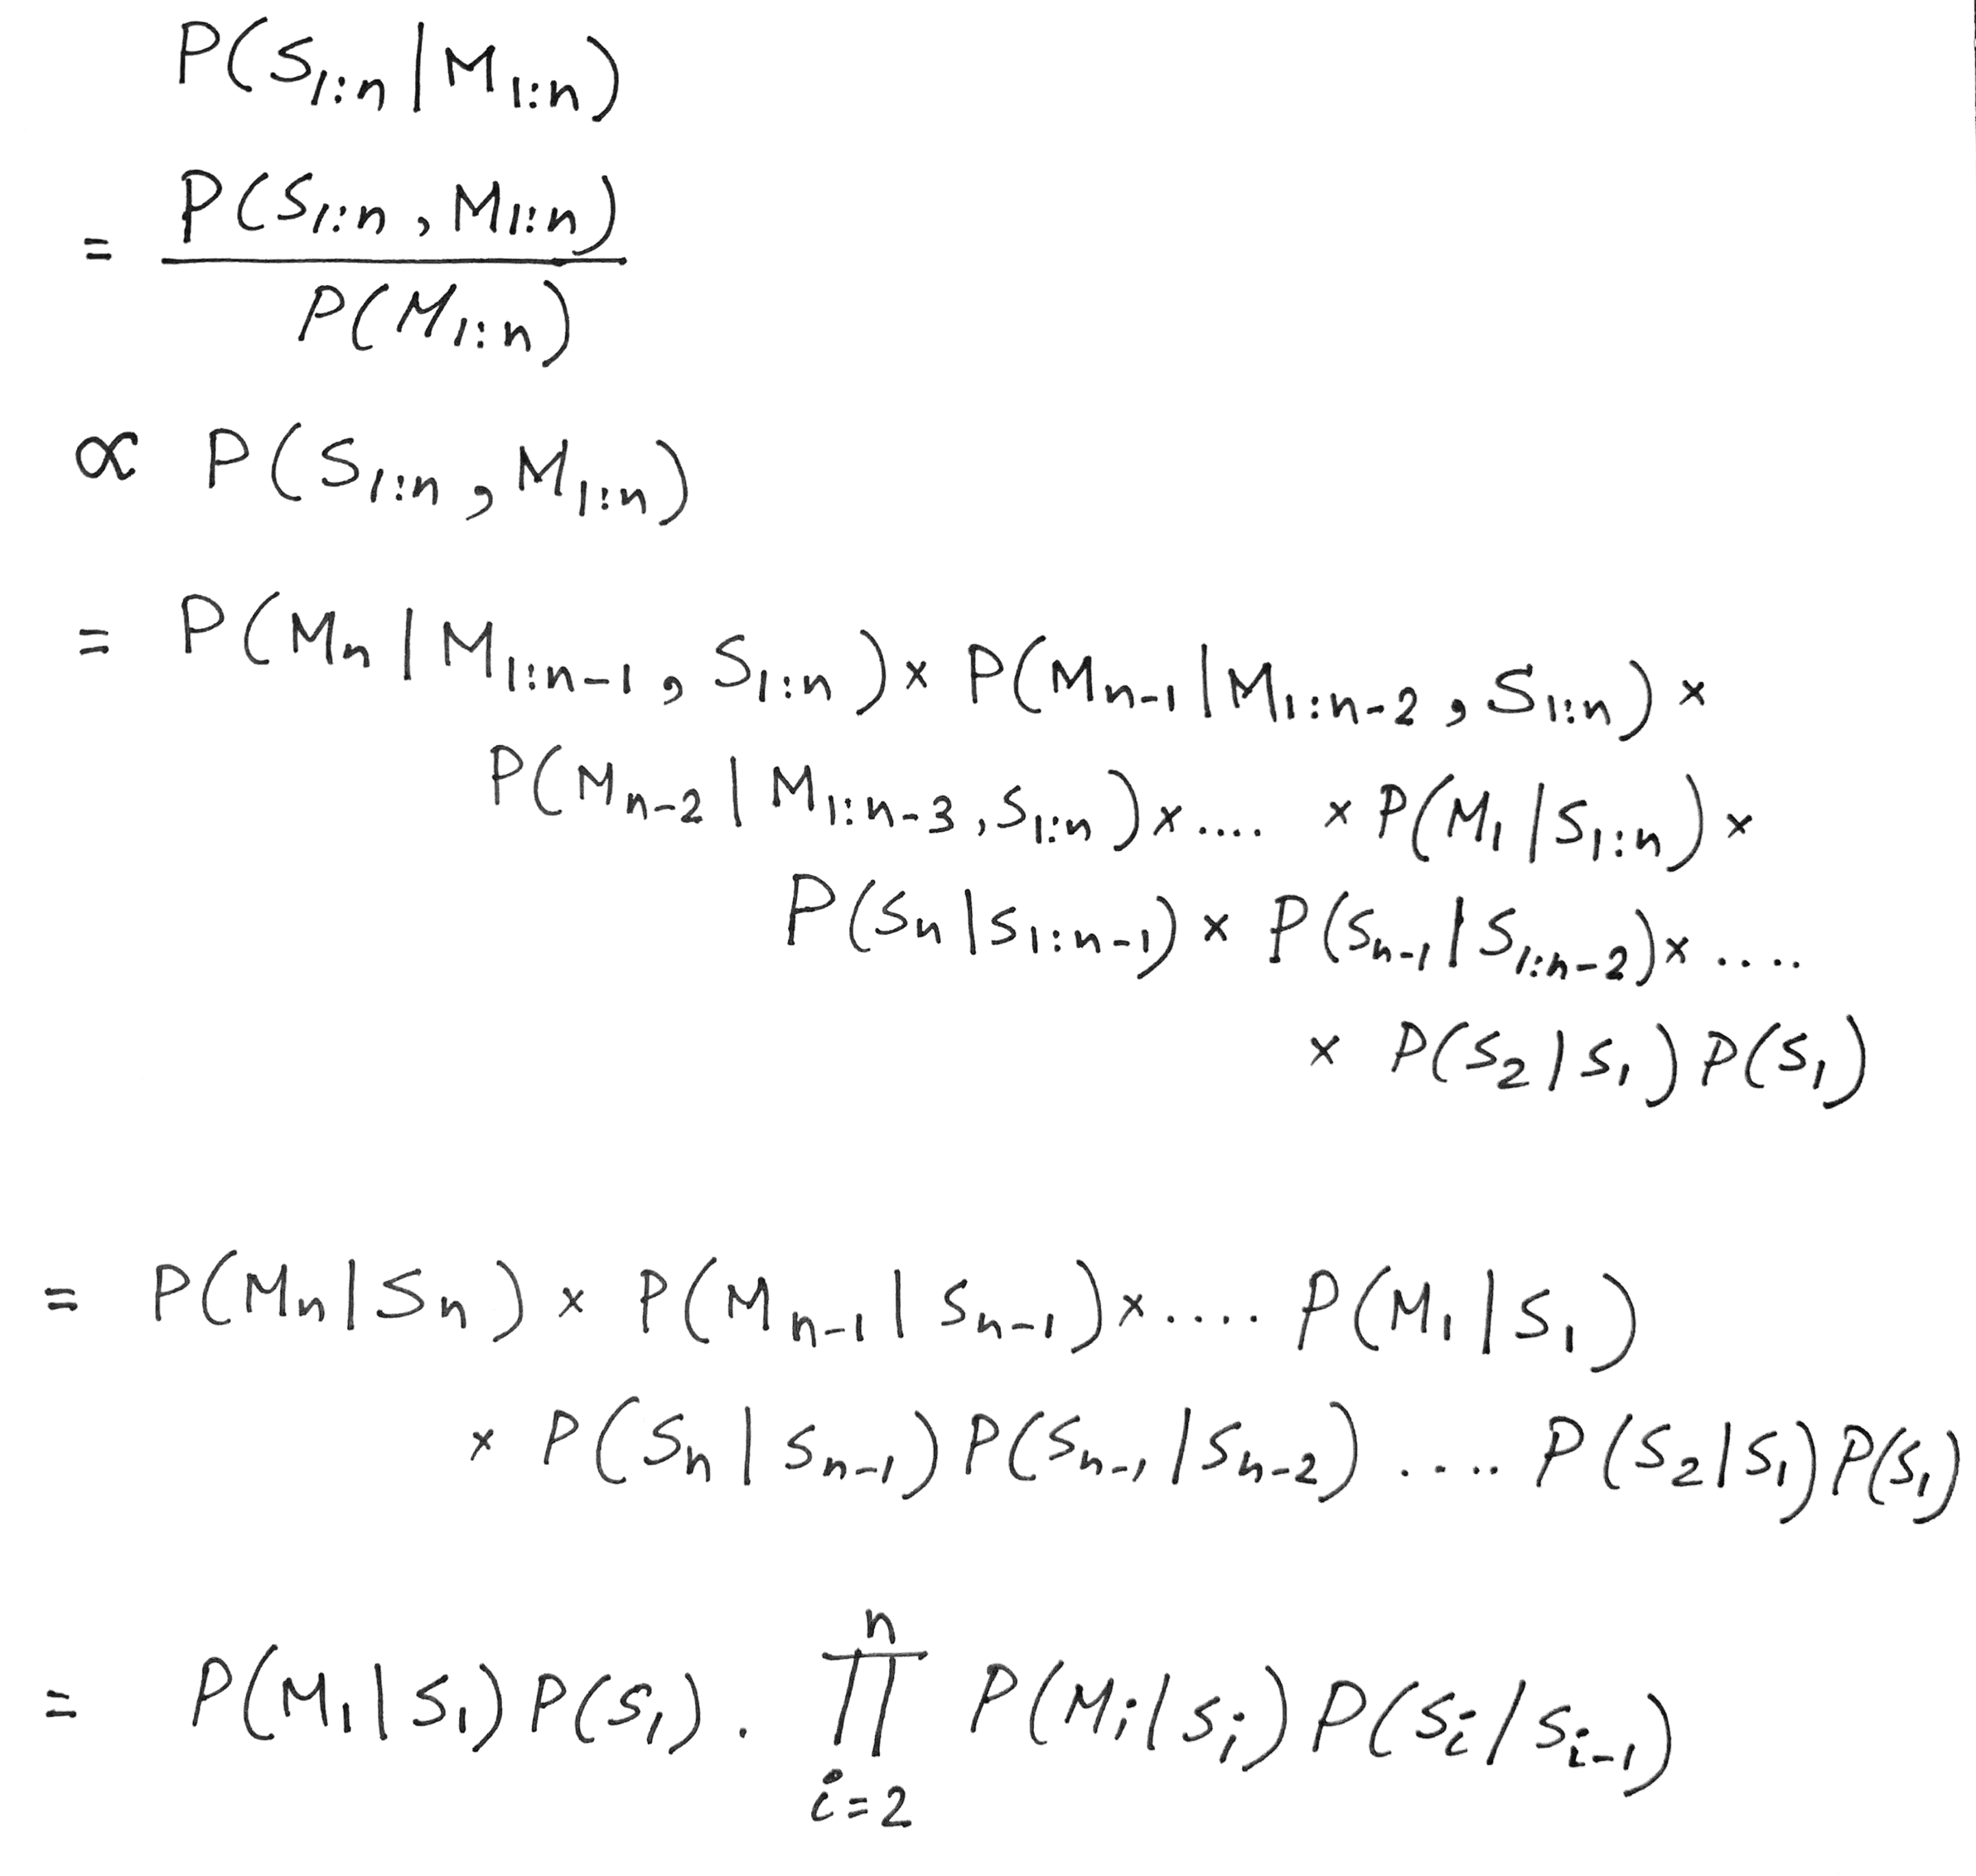 P(S₁:ₙ | M₁:ₙ)
= P(S₁:ₙ , M₁:ₙ)
P(M₁:ₙ)
∝ P(S₁:ₙ , M₁:ₙ)
= P(Mₙ | M₁:ₙ₋₁ , S₁:ₙ) × P(Mₙ₋₁ | M₁:ₙ₋₂ , S₁:ₙ) ×
P(Mₙ₋₂ | M₁:ₙ₋₃ , S₁:ₙ) × .... × P(M₁ | S₁:ₙ) ×
P(Sₙ | S₁:ₙ₋₁) × P(Sₙ₋₁ | S₁:ₙ₋₂) × ....
× P(S₂ | S₁) P(S₁)
= P(Mₙ | Sₙ) × P(Mₙ₋₁ | Sₙ₋₁) × .... P(M₁ | S₁)
× P(Sₙ | Sₙ₋₁) P(Sₙ₋₁ | Sₙ₋₂) .... P(S₂ | S₁) P(S₁)
n
= P(M₁ | S₁) P(S₁) . ∏ P(Mᵢ | Sᵢ) P(Sᵢ | Sᵢ₋₁)
i=2